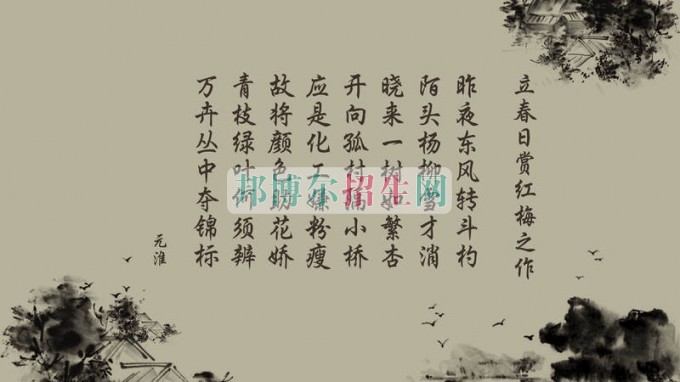 立春日赏红梅之作
昨夜东风转斗杓
陌头杨柳雪才消
晓来一树如繁杏
开向孤村隔小桥
应是化工嫌粉瘦
故将颜色助花娇
青枝绿叶何须辨
万卉丛中夺锦标
元淮
邦博尔招生网